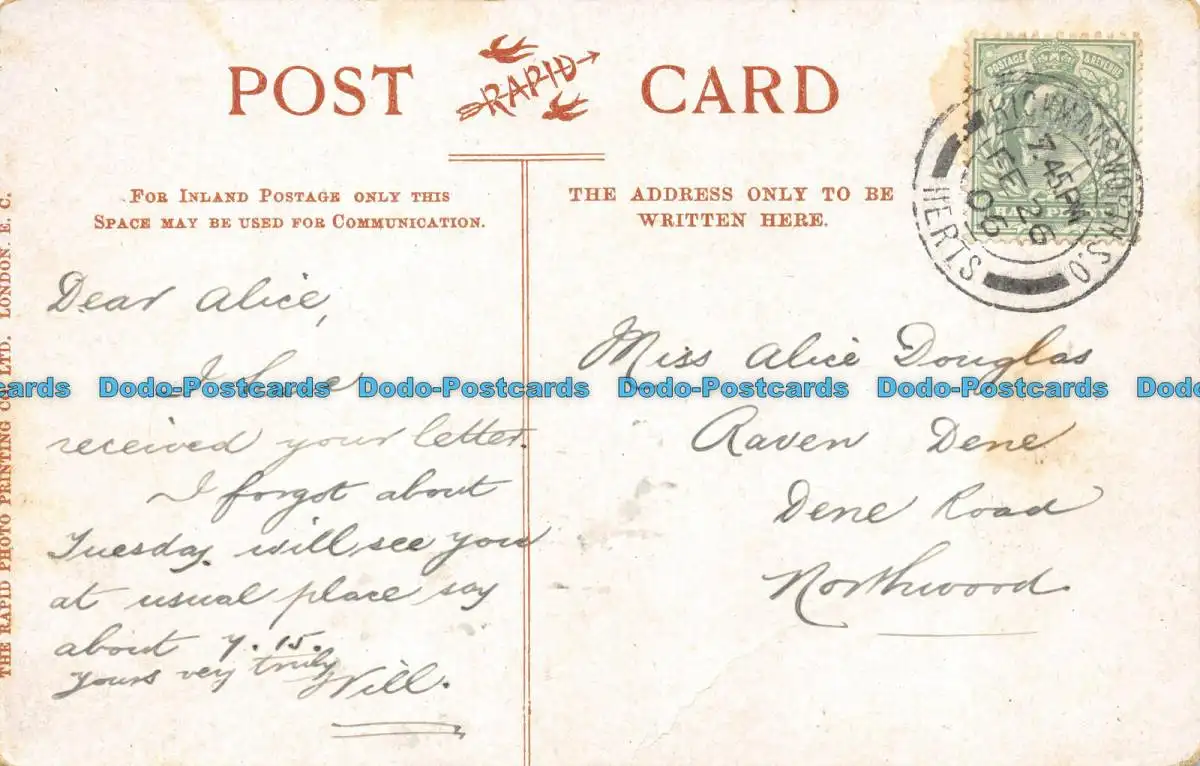 POST CARD
RAPID
FOR INLAND POSTAGE ONLY THIS
SPACE MAY BE USED FOR COMMUNICATION.
THE ADDRESS ONLY TO BE
WRITTEN HERE.
POSTAGE & REVENUE
HALF PENNY
RICKMANSWORTH S.O
7.45PM
FE 26
06
HERTS
THE RAPID PHOTO PRINTING CO., LTD. LONDON. E. C.
Dear Alice,
I have
received your letter.
I forgot about
Tuesday. will see you
at usual place say
about 7.15.
yours very truly
Will.
Miss Alice Douglas
Raven Dene
Dene Road
Northwood
Dodo-Postcards Dodo-Postcards Dodo-Postcards Dodo-Postcards